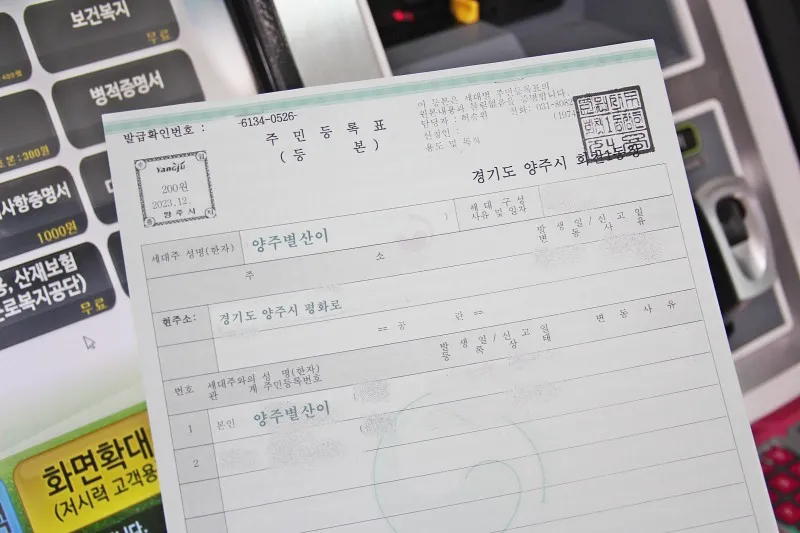 보건복지
무료
400원
병적증명서
본 : 300원
사항증명서
1000원
용, 산재보험
근로복지공단)
무료
화면확대
(저시력 고객용
발급확인번호 :
-6134-0526-
주 민 등 록 표
( 등 본 )
이 등본은 세대별 주민등록표의
원본내용과 틀림없음을 증명합니다.
담당자 : 허승원 전화 : 031-8082
신청인 : (1974
용도 및 목적
경기도 양주시 회천1동장
Yangju
200원
2023.12.
양주시
세대주 성명(한자)
양주별산이
)
세 대 구 성
사유 및 일자
주 소
발 생 일 / 신 고 일
변 동 사 유
현주소:
경기도 양주시 평화로
== 공 란 ==
번호
세대주와의 성 명(한자)
관 계 주민등록번호
발 생 일 / 신 고 일
등 록 상 태
변 동 사 유
1 본인 양주별산이 (
2 (